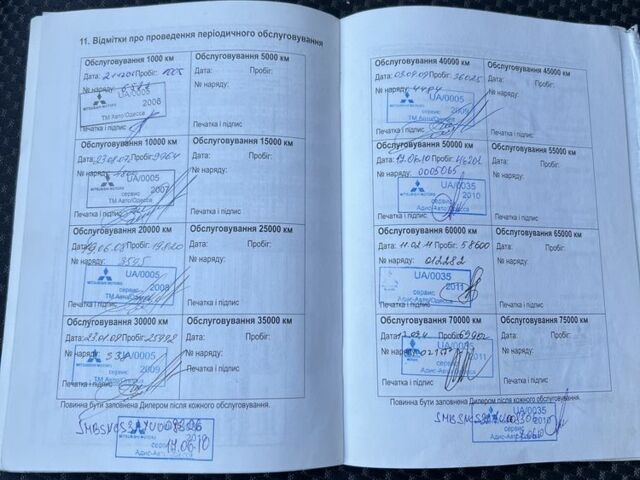 11. Відмітки про проведення періодичного обслуговування
Обслуговування 1000 км
Обслуговування 5000 км
Дата: Пробіг: 1005
Дата: Пробіг:
№ наряду:
№ наряду:
UA/0005
MITSUBISHI MOTORS
2008
ТМ Авто/Одесса
Печатка і підпис
Печатка і підпис
Обслуговування 10000 км
Обслуговування 15000 км
Дата: 23.08.07 Пробіг: 9964
Дата: Пробіг:
№ наряду:
№ наряду:
UA/0005
MITSUBISHI MOTORS
2007
сервис
ТМ Авто/Одесса
Печатка і підпис
Печатка і підпис
Обслуговування 20000 км
Обслуговування 25000 км
Дата: 19.06.08 Пробіг:
Дата: Пробіг:
№ наряду: 3595
№ наряду:
UA/0005
MITSUBISHI MOTORS
сервис 2008
ТМ Авто/Одесса
Печатка і підпис
Печатка і підпис
Обслуговування 30000 км
Обслуговування 35000 км
Дата: Пробіг: 25998
Дата: Пробіг:
№ наряду:
№ наряду:
UA/0005
MITSUBISHI MOTORS
сервис
2009
ТМ Авто/Одесса
Печатка і підпис
Печатка і підпис
Повинна бути заповнена Дилером після кожного обслуговування.
MITSUBISHI MOTORS
сервис
17.06.10
Адис-Авто
Обслуговування 40000 км
Обслуговування 45000 км
Дата: 03.09.09 Пробіг: 36025
Дата: Пробіг:
№ наряду: 4484
№ наряду:
UA/0005
MITSUBISHI MOTORS
2009
ТМ Авто/Одесса
Печатка і підпис
Печатка і підпис
Обслуговування 50000 км
Обслуговування 55000 км
Дата: 17.06.10 Пробіг: 46201
Дата: Пробіг:
№ наряду: 0005065
№ наряду:
UA/0035
MITSUBISHI MOTORS
2010
сервис
Адис-Авто
Печатка і підпис
Печатка і підпис
Обслуговування 60000 км
Обслуговування 65000 км
Дата: 11.02.11 Пробіг: 58600
Дата: Пробіг:
№ наряду: 012282
№ наряду:
UA/0035
MITSUBISHI MOTORS
2011
сервис
Адис-Авто/Одесса
Печатка і підпис
Печатка і підпис
Обслуговування 70000 км
Обслуговування 75000 км
Дата: Пробіг: 69962
Дата: Пробіг:
№ наряду:
№ наряду:
UA/0035
2011
сервис
Адис-Авто
Печатка і підпис
Печатка і підпис
Повинна бути заповнена Дилером після кожного обслуговування.
UA/0035
MITSUBISHI MOTORS
2010
сервис
Адис-Авто